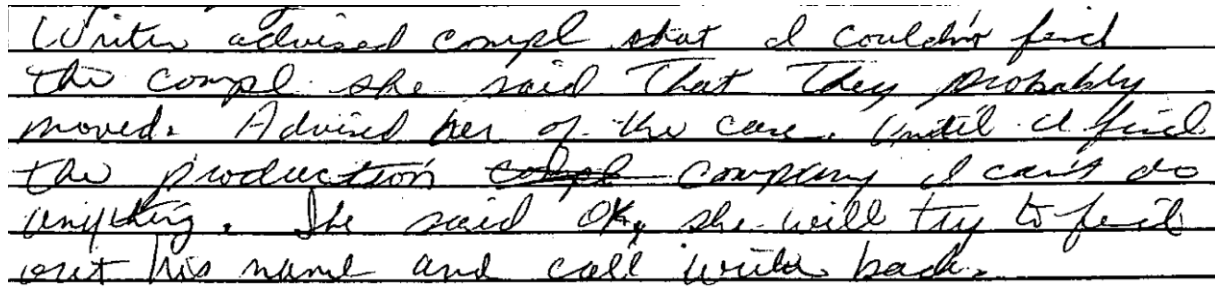 Writer advised compl that I couldn't find
the compl. she said That They probably
moved. Advised her of the case. Until I find
the production company I can't do
anything. She said OK, she will try to find
out his name and call writer back.